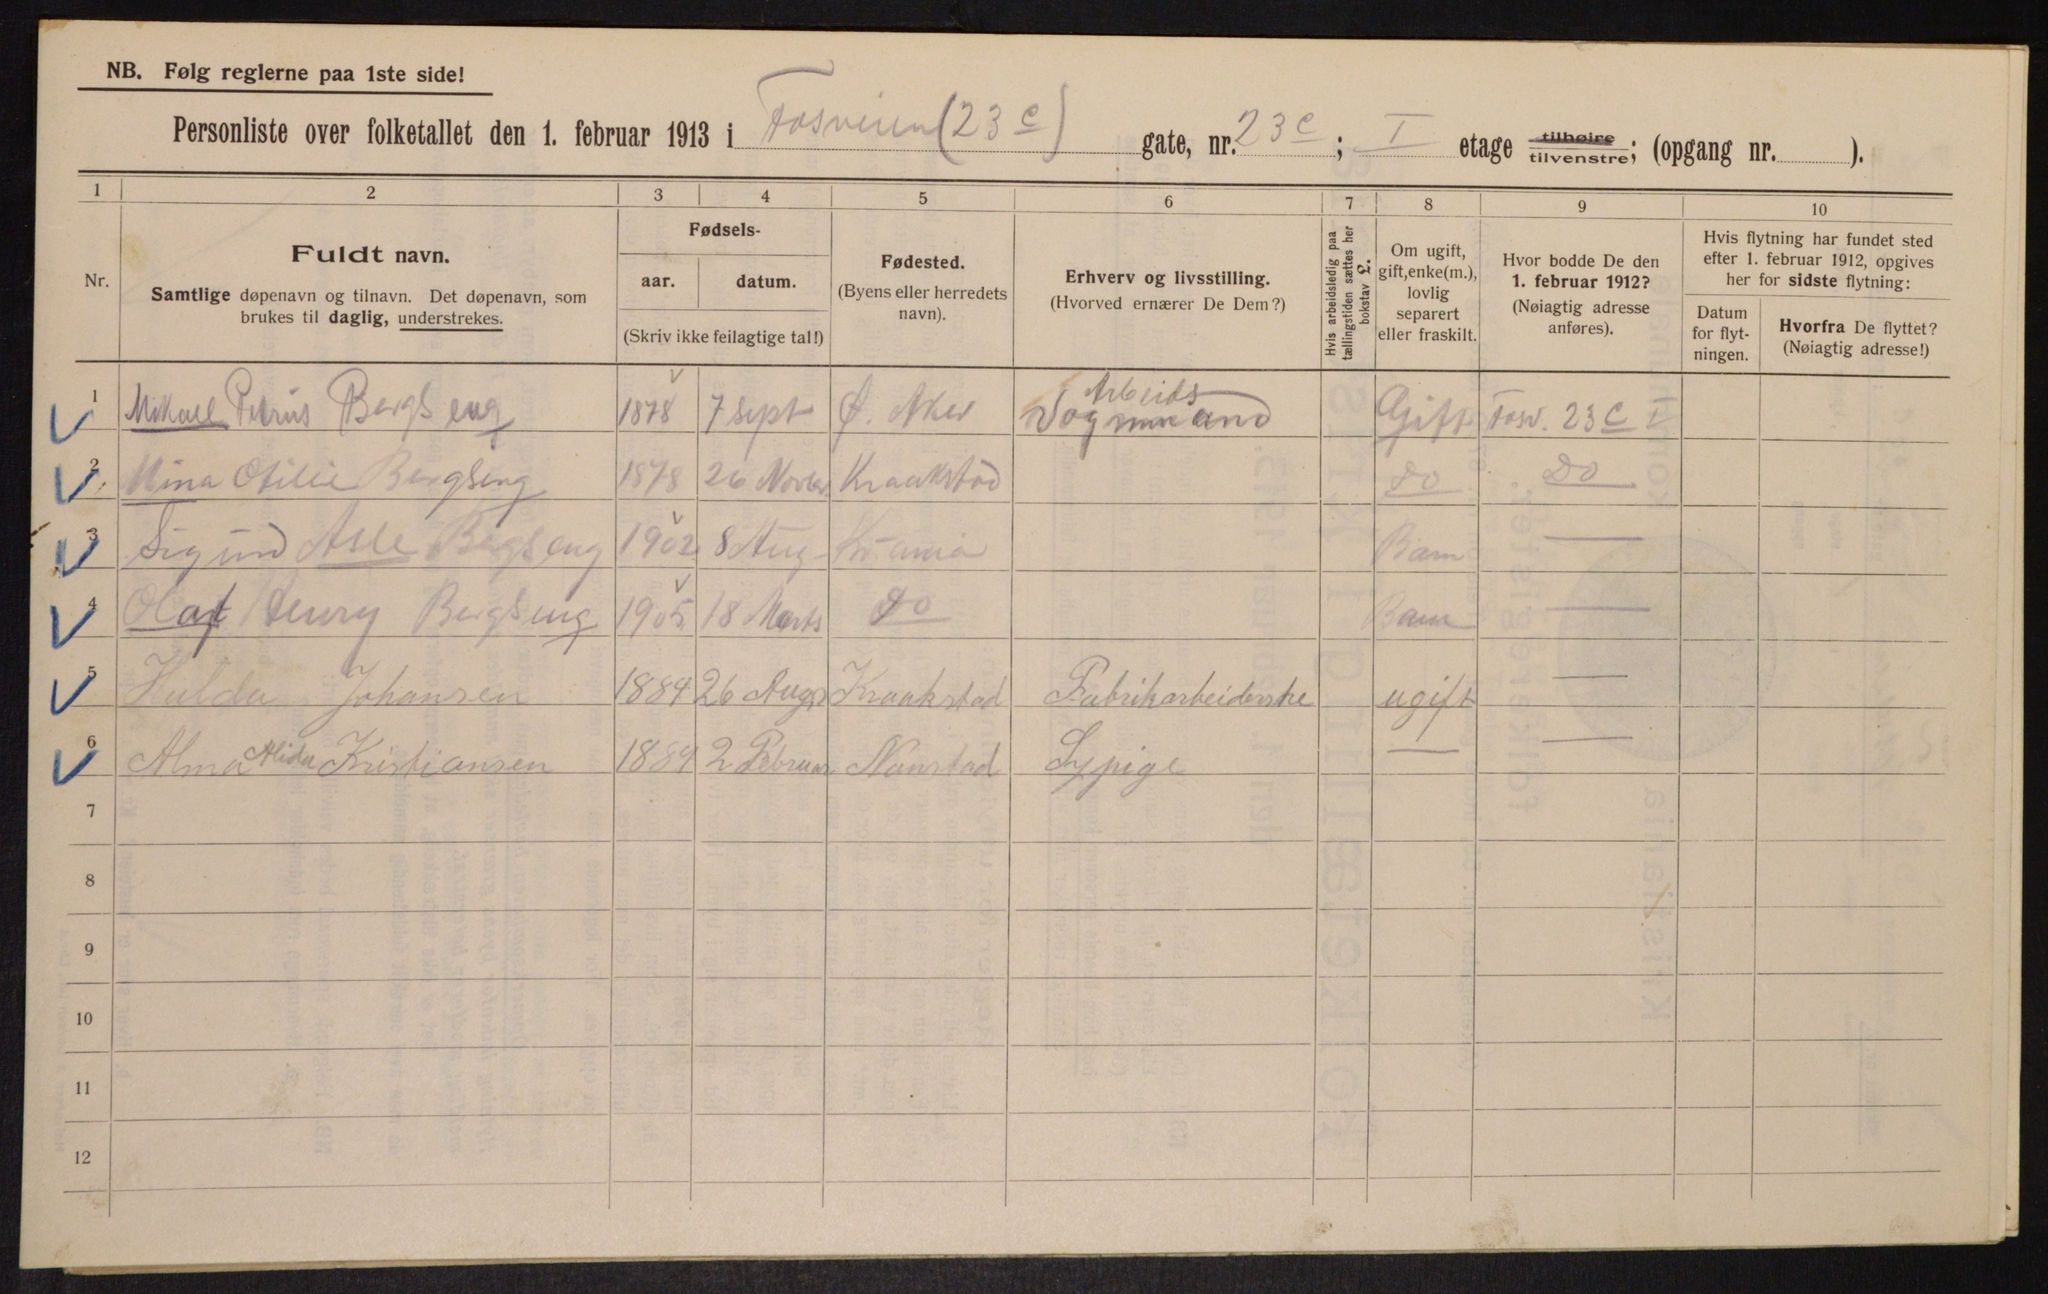 NB. Følg reglerne paa 1ste side!
Personliste over folketallet den 1. februar 1913 i Fosveien (23 c) gate, nr. 23 c; I etage tilhøire tilvenstre; (opgang nr. ).
1 2 3 4 5 6 7 8 9 10
Nr.
Fuldt navn.
Samtlige døpenavn og tilnavn. Det døpenavn, som
brukes til daglig, understrekes.
Fødsels-
aar. datum.
(Skriv ikke feilagtige tal!)
Fødested.
(Byens eller herredets
navn).
Erhverv og livsstilling.
(Hvorved ernærer De Dem?)
Hvis arbeidsledig paa
tællingstiden sættes her
bokstav L.
Om ugift,
gift, enke(m.),
lovlig
separert
eller fraskilt.
Hvor bodde De den
1. februar 1912?
(Nøiagtig adresse
anføres).
Hvis flytning har fundet sted
efter 1. februar 1912, opgives
her for sidste flytning:
Datum
for flyt-
ningen.
Hvorfra De flyttet?
(Nøiagtig adresse!)
1 Mikael Petrius Bergseng 1878 7 Sept Ø. Aker Arbeids Vognmand Gift Fosv. 23 C I
2 Mina Otilie Bergseng 1878 26 Novbr Kraakstad do Do
3 Sigurd Asle Bergseng 1902 8 Aug Kr.ania Barn —
4 Olaf Henry Bergseng 1905 18 Marts do Barn —
5 Hulda Johansen 1884 26 Augs Kraakstad Fabrikarbeiderske ugift —
6 Alma Alida Kristiansen 1889 2 Februar Nanstad Sypige — —
7
8
9
10
11
12